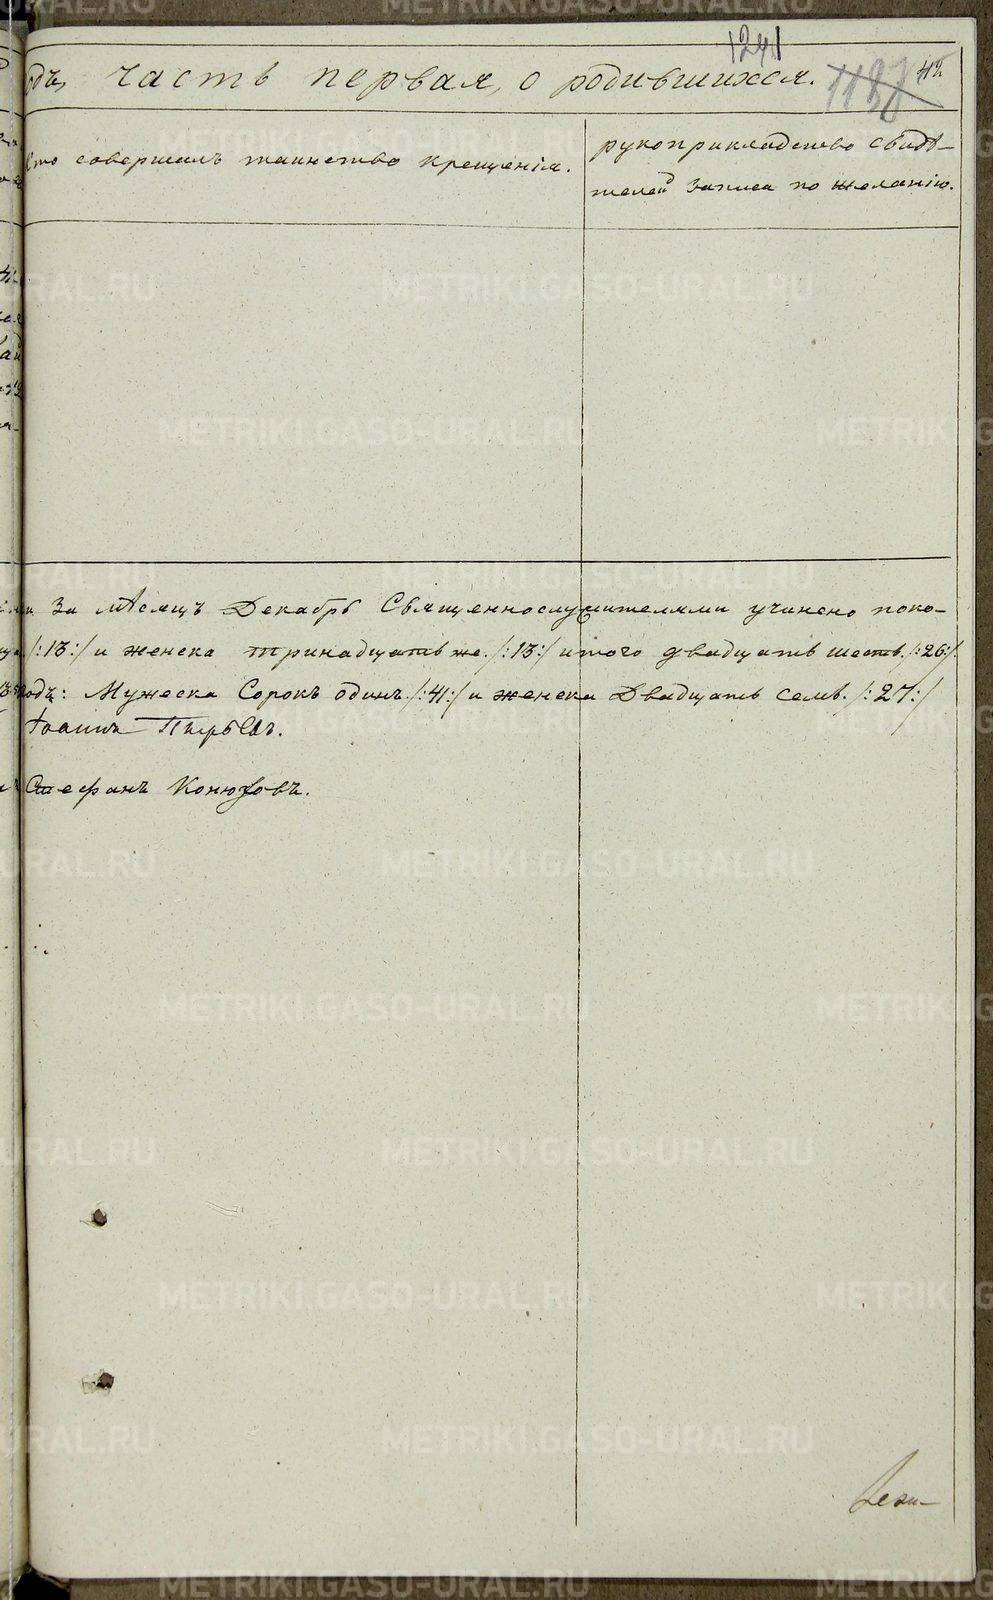 1241
одъ, часть первая, о родившихся. 42
Кто совершалъ таинство крещенія.
рукоприкладство свидѣ-
телей записи по желанію.
за мѣсяцъ Декабрь Священнослужителями учинено поко-
/:13:/ и женска тринадцать же. /:13:/ итого двадцать шесть. /:26:/.
одъ: Мужеска Сорокъ одинъ. /:41:/ и женска Двадцать семь. /:27:/
Іоаннъ
Стефанъ Конюховъ.
METRIKI.GASO-URAL.RU